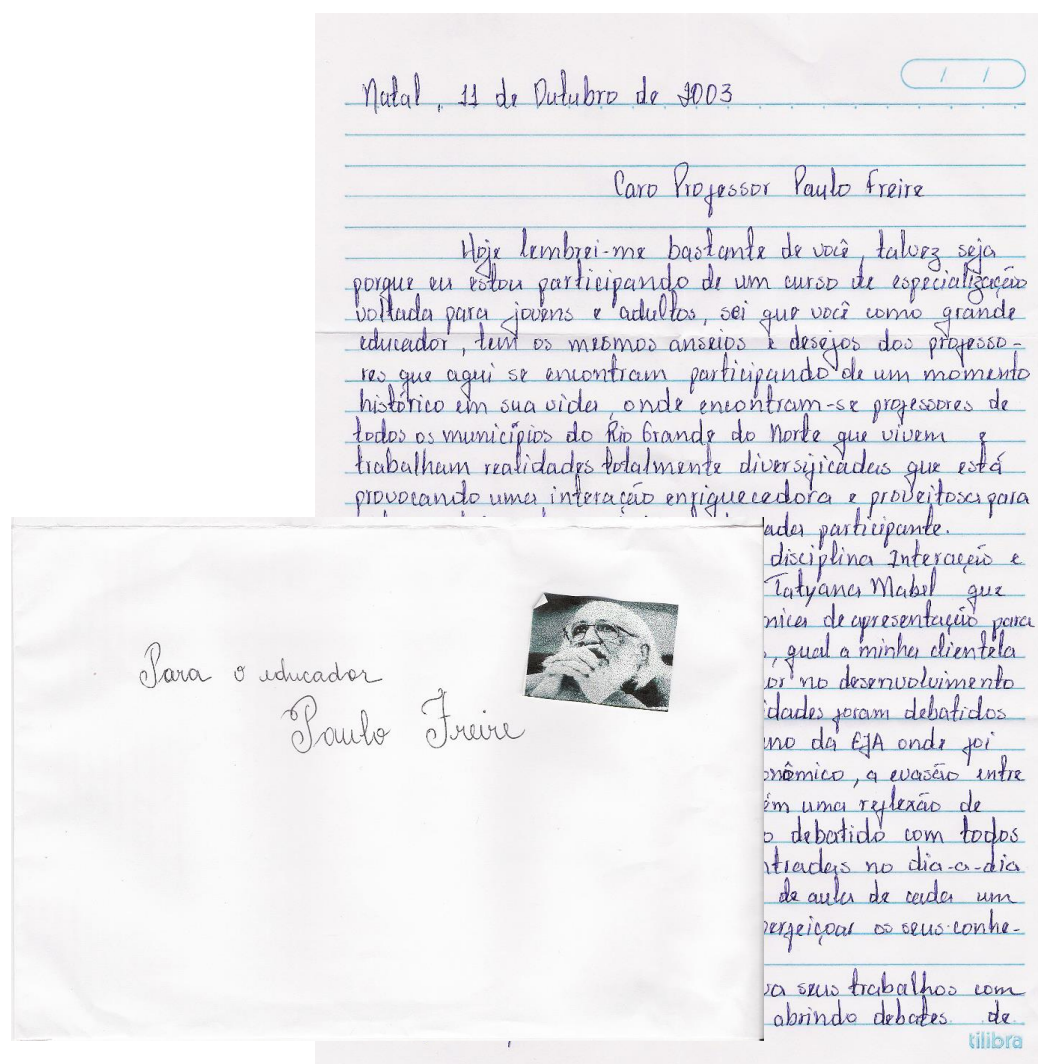 Natal, 11 de Outubro de 2003
Caro Professor Paulo Freire
Hoje lembrei-me bastante de você, talvez seja
porque eu estou participando de um curso de especialização
voltada para jovens e adultos, sei que você como grande
educador, tem os mesmos anseios e desejos dos professo-
res que aqui se encontram participando de um momento
histórico em sua vida, onde encontram-se professores de
todos os municípios do Rio Grande do Norte que vivem e
trabalham realidades totalmente diversificadas que está
provocando uma interação enriquecedora e proveitosa para
ada participante.
disciplina Interação e
Tatyana Mabel que
nica de apresentação para
, qual a minha clientela
or no desenvolvimento
idades foram debatidos
uno da EJA onde foi
onômico, a evasão entre
ém uma reflexão de
o debatido com todos
ntradas no dia-a-dia
de aula de cada um
perfeiçoar os seus conhe-
va seus trabalhos com
abrindo debates de
tilibra
Para o educador
Paulo Freire